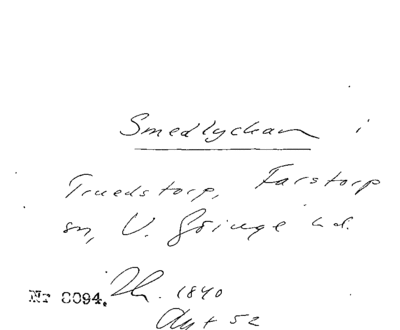 Smedlyckan i
Truedstorp, Farstorp
sn, V. Göinge hd.
Nr 8094. 1840
Akt 52